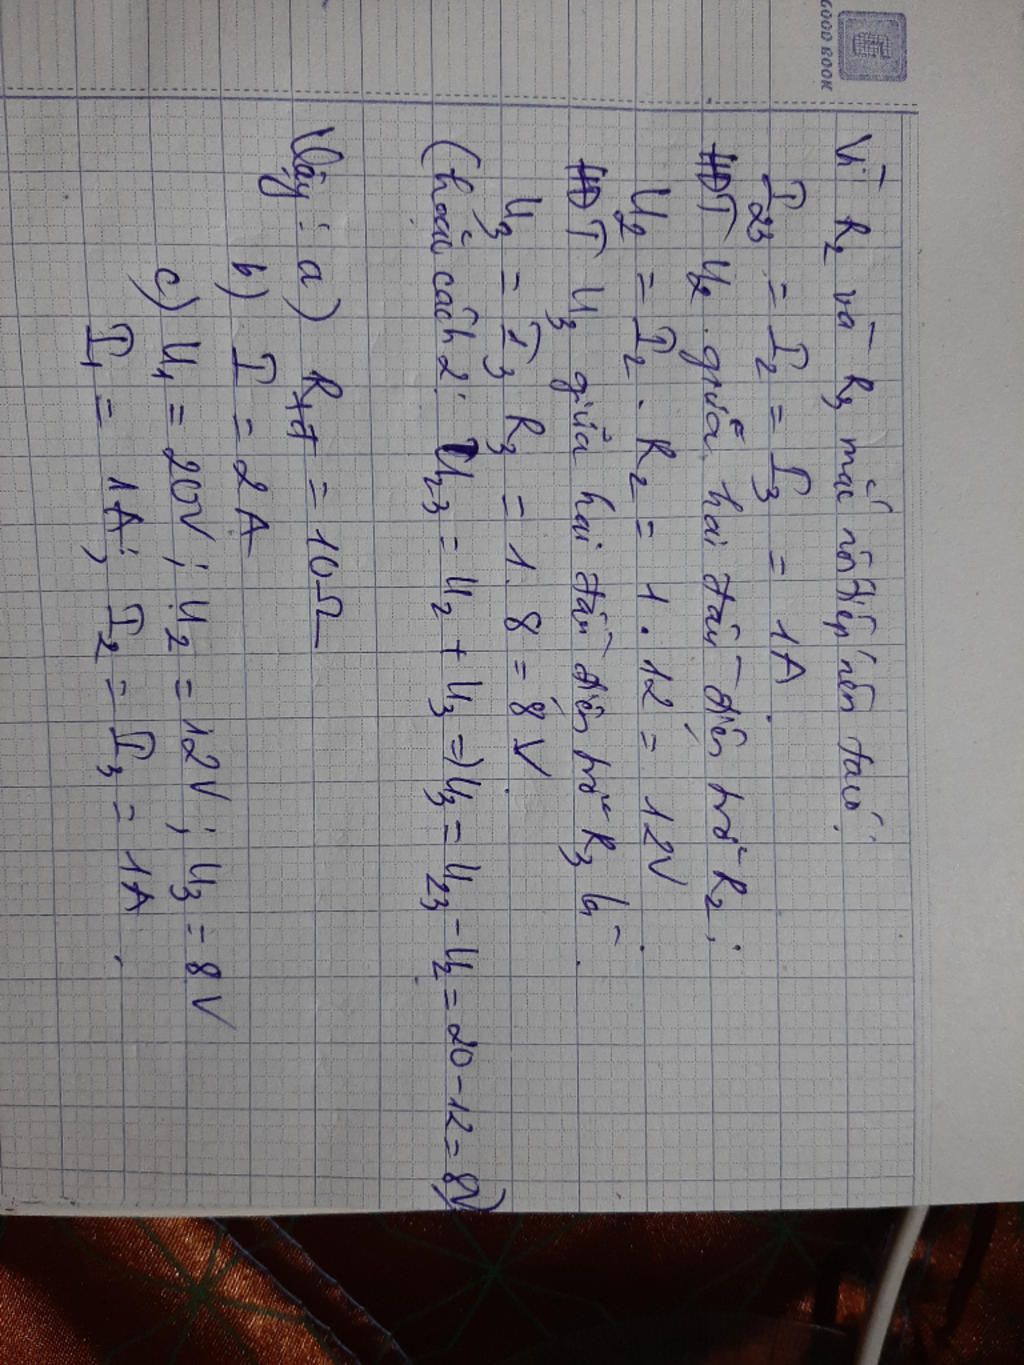 GOOD BOOK
Vì R2 và R3 mắc nối tiếp nên ta có:
I23 = I2 = I3 = 1A.
HĐT U2 giữa hai đầu điện trở R2:
U2 = I2 . R2 = 1 . 12 = 12V.
HĐT U3 giữa hai đầu điện trở R3 là.
U3 = I3 R3 = 1. 8 = 8V.
(hoặc cách 2: U23 = U2 + U3 => U3 = U23 - U2 = 20 - 12 = 8V)
Vậy: a) Rtđ = 10Ω
b) I = 2A
c) U1 = 20V; U2 = 12V; U3 = 8V
I1 = 1A; I2 = I3 = 1A.